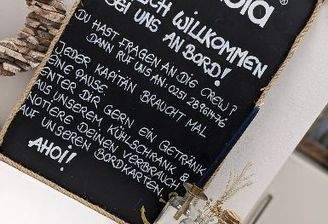 ICH WILLKOMMEN
BEI UNS AN BORD!
DU HAST FRAGEN AN DIE CREW?
DANN RUF UNS AN: 0251 28961476
JEDER KAPITÄN BRAUCHT MAL
EINE PAUSE.
ENTER DIR GERN EIN GETRÄNK
AUS UNSEREM KÜHLSCHRANK &
NOTIERE DEINEN VERBRAUCH
AUF UNSEREN BORDKARTEN.
AHOI!